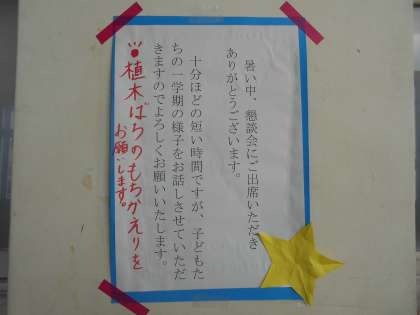 暑い中、懇談会にご出席いただき
ありがとうございます。
十分ほどの短い時間ですが、子どもた
ちの一学期の様子をお話しさせていただ
きますのでよろしくお願いいたします。
植木ばちのもちかえりを
お願いします。